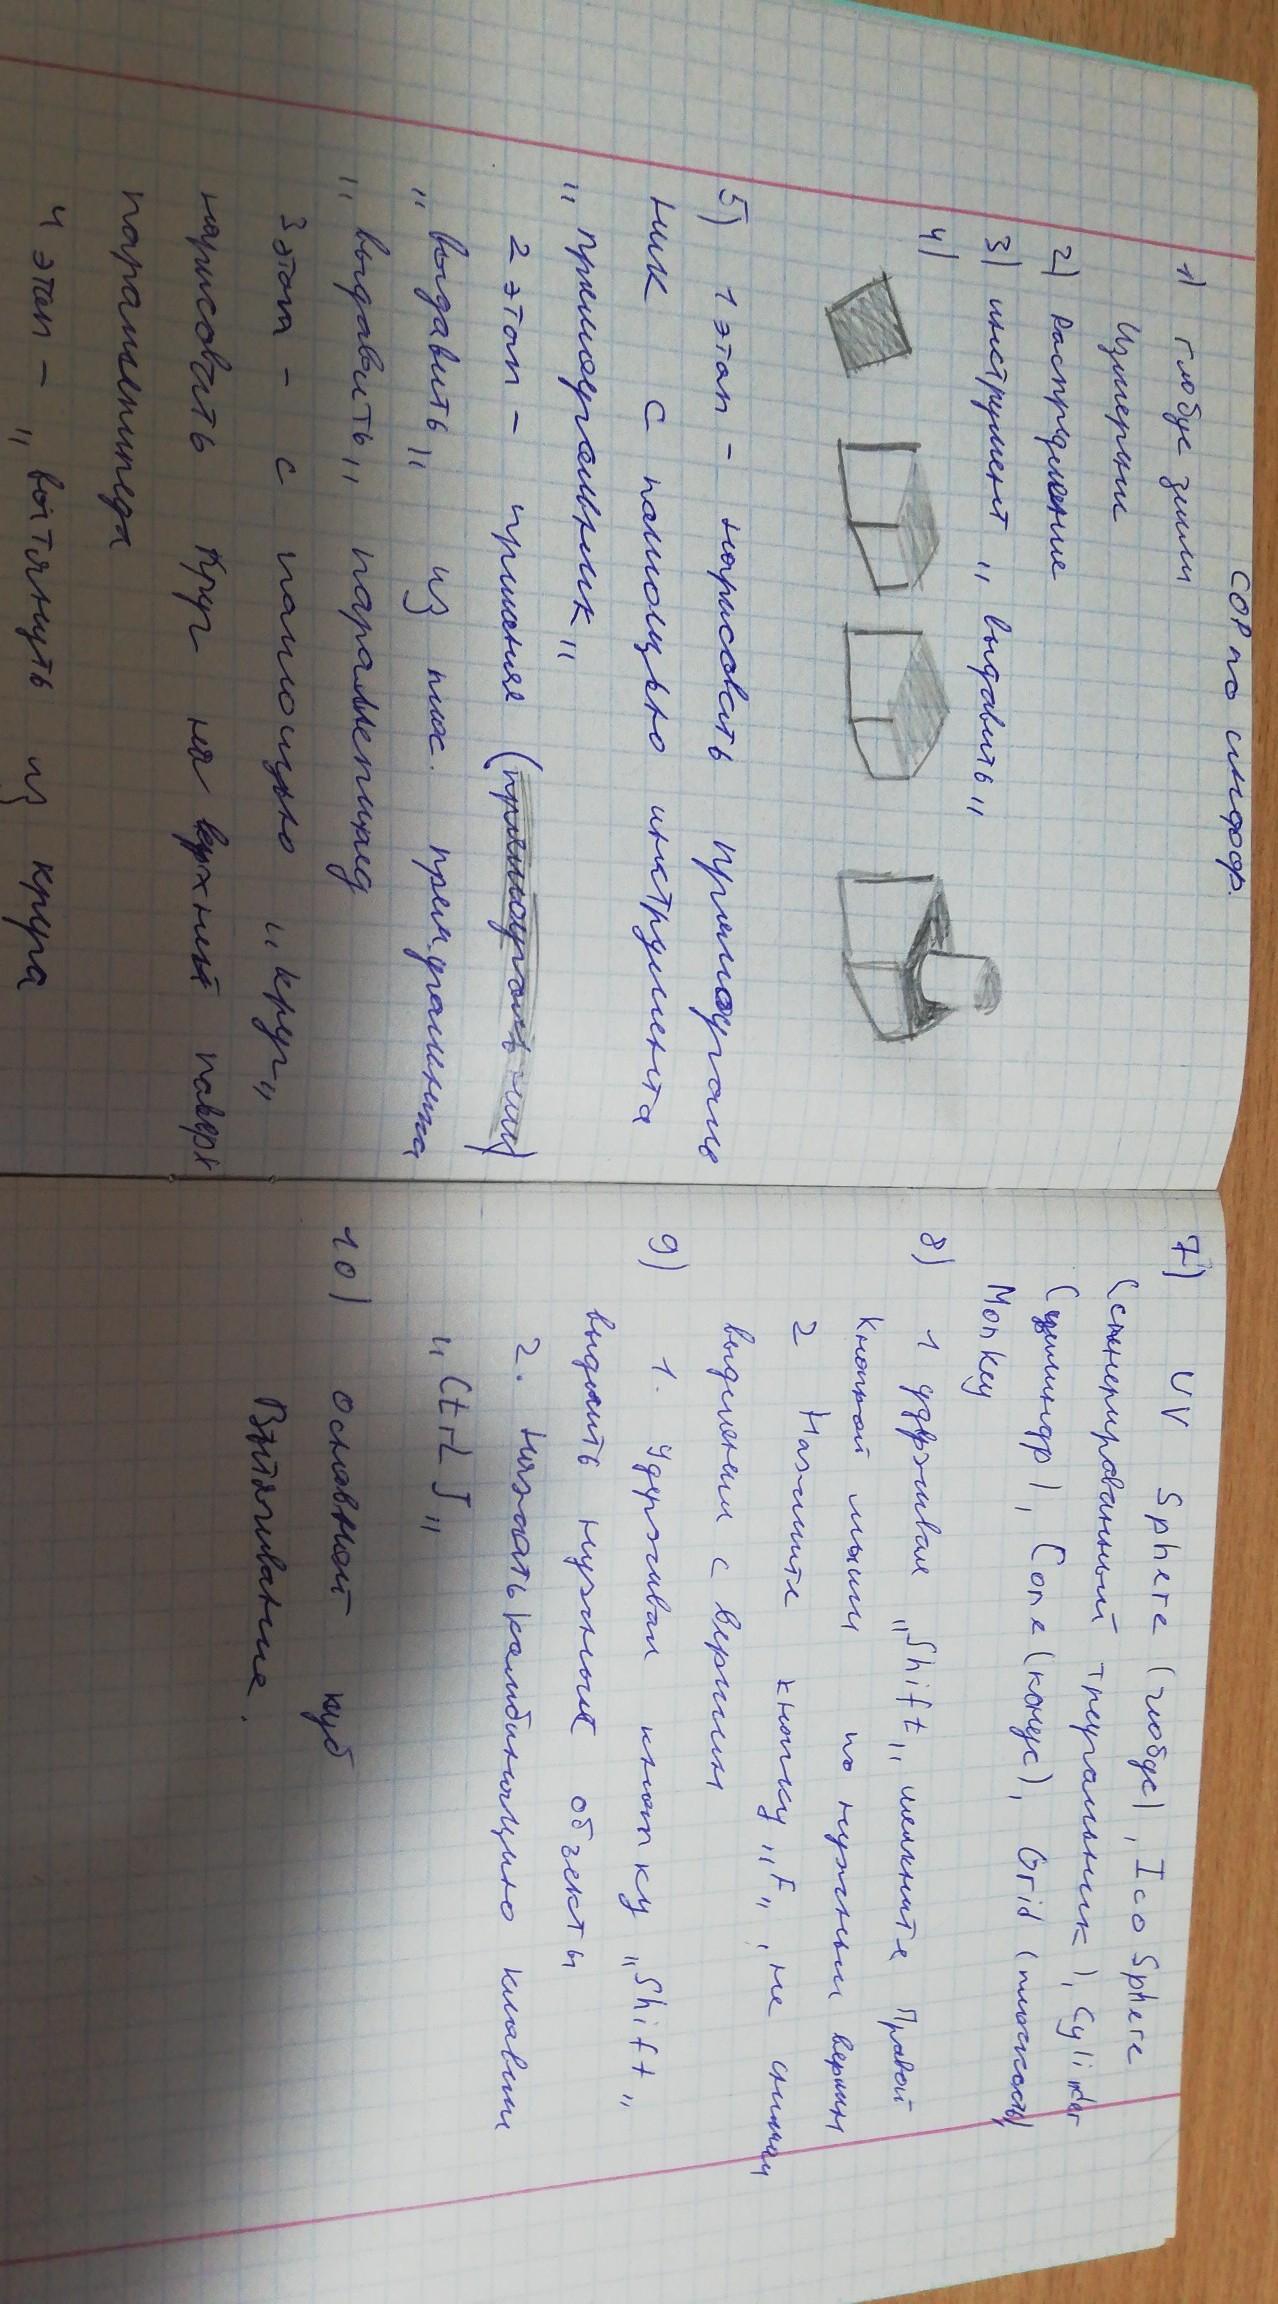 СОР по инфор.
1) глобус земли
Измерение
2) Распределение
3) инструмент „ выдавить „
4)
5) 1 этап - нарисовать прямоуголь
ник с помощью инструмента
„ прямоугольник "
2 этап - применяя (прямоуголь
„ выдавить „ из плос.
„ выдавить „ параллепипед
3 этап - с помощью „ круг „
нарисовать круг на верхний паверх
параллепипеда
4 этап - „ вытянуть из круга
7) UV Sphere (глобус), Ico Sphere
(сгенерированный треугальник), Cylinder
(цилиндр), Cone (конус), Grid (плоскость)
Monkey
8) 1 удерживая „Shift„ щелкните правой
кнопкой мыши по нужным верши
2 Нажмите кнопку „F„, не снимая
выделения с вершин
9) 1. Удерживая кнопку „Shift„
выделить нужные объекты
2. Нажать камбинацию клавиш
„ Ctrl J „
10) основной куб
Вытягивание.